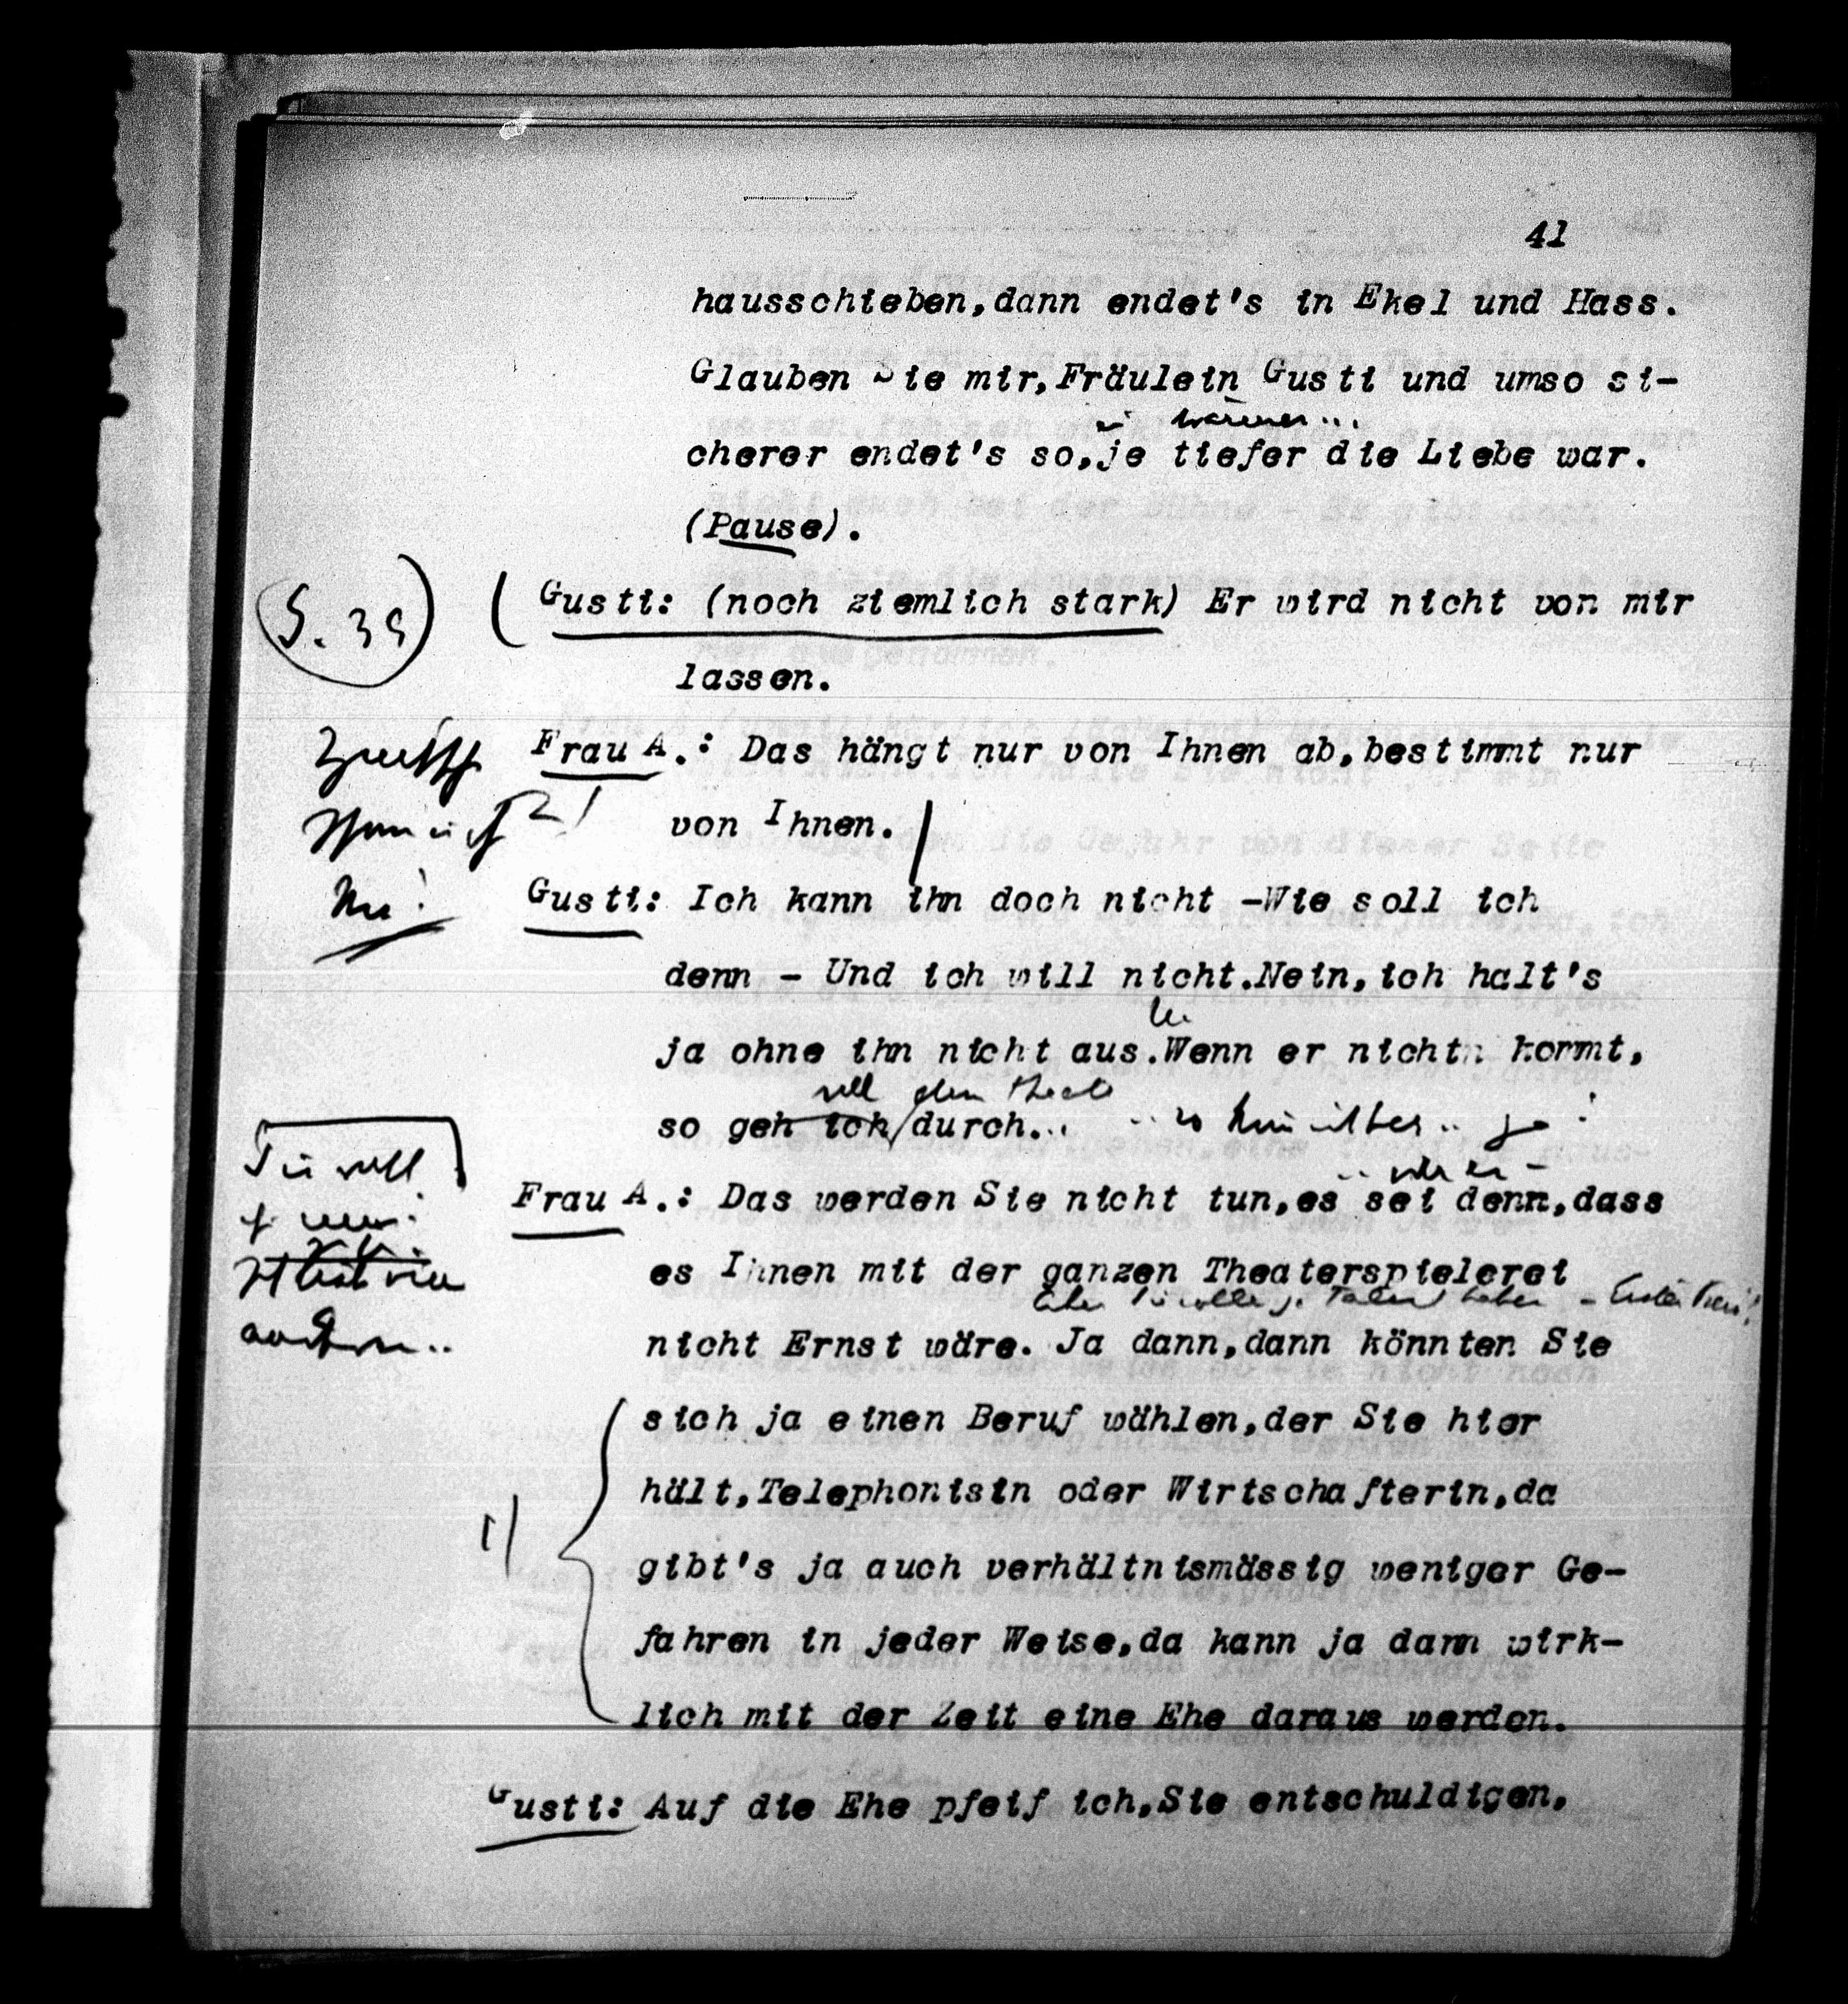 41
hausschieben,dann endet's in Ekel und Hass.
Glauben Sie mir,Fräulein Gusti und umso si-
wärmer...
cherer endet's so,je tiefer die Liebe war.
(Pause).
S. 39
(Gusti: (noch ziemlich stark) Er wird nicht von mir
lassen.
Frau A.: Das hängt nur von Ihnen ab,bestimmt nur
von Ihnen.
Gusti: Ich kann ihn doch nicht -Wie soll ich
denn - Und ich will nicht.Nein,ich halt's
ja ohne ihn nicht aus.Wenn er nicht kommt,
so geh ich durch...
Frau A.: Das werden Sie nicht tun,es sei denn,dass
es Ihnen mit der ganzen Theaterspielerei
nicht Ernst wäre. Ja dann,dann könnten Sie
sich ja einen Beruf wählen,der Sie hier
hält,Telephonistn oder Wirtschafterin,da
1)
gibt's ja auch verhältnismässig weniger Ge-
fahren in jeder Weise,da kann ja dann wirk-
lich mit der Zeit eine Ehe daraus werden.
Gusti: Auf die Ehe pfeif ich,Sie entschuldigen,